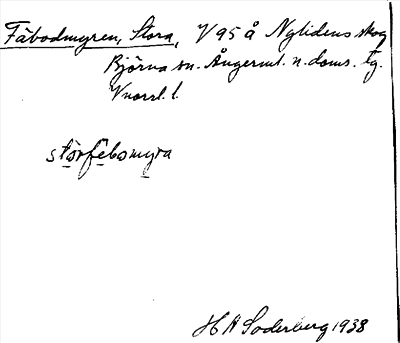 Fäbodmyren, Stora, V95 å Nylidens skog
Björna sn. Ångerml. n. doms. tg.
Vnorrl. l.
störfebomyra
H A Söderberg 1938